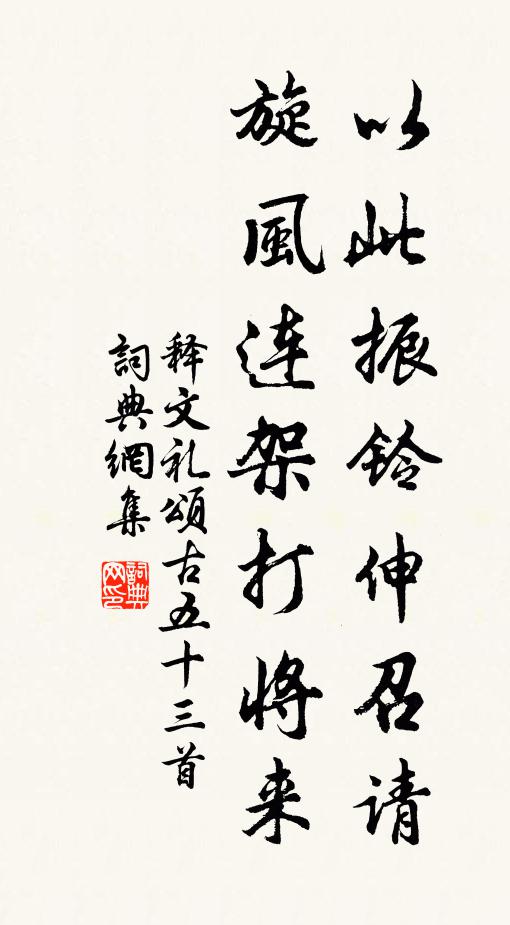 以此振铃伸召请
旋風连架打将来
释文礼頌古五十三首
詞典網集
詞典网印